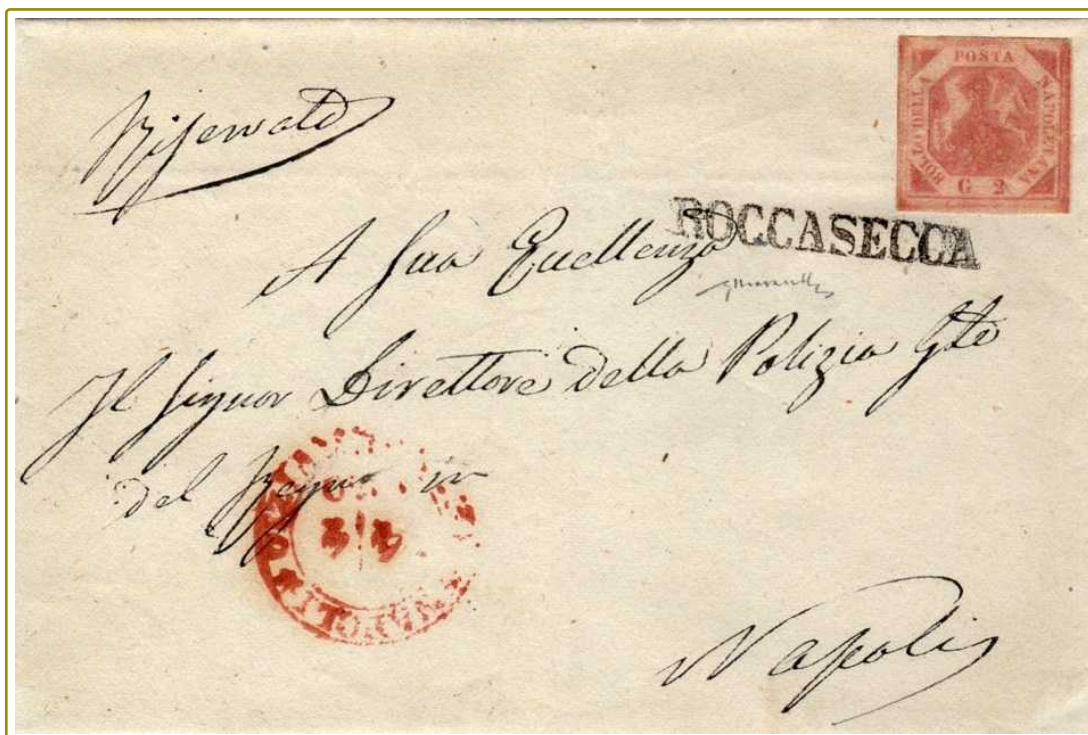 BOLLO DELLA POSTA NAPOLETANA
G 2
ROCCASECCA
A Sua Eccellenza
Il Signor Direttore della Polizia Gle
del Regno in
NAPOLI
Napoli